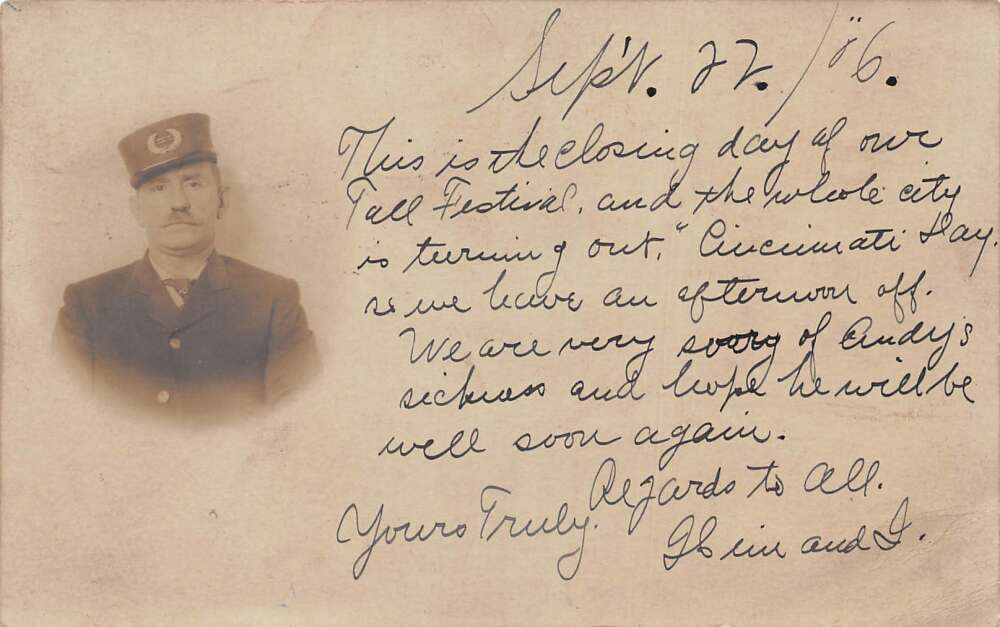 Sep't. 22. / "06.
This is the closing day of our
Fall Festival, and the whole city
is turning out, "Cincinnati Day.
so we have an afternoon off.
We are very sorry of Andy's
sickness and hope he will be
well soon again.
Regards to All.
Yours Truly.
and I.